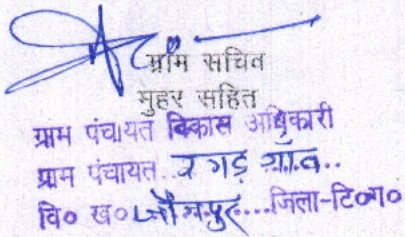 ग्राम सचिव
मुहर सहित
ग्राम पंचायत विकास अधिकारी
ग्राम पंचायत..रगड़ गाँव..
वि० ख०जौनपुर....जिला-टि०ग०